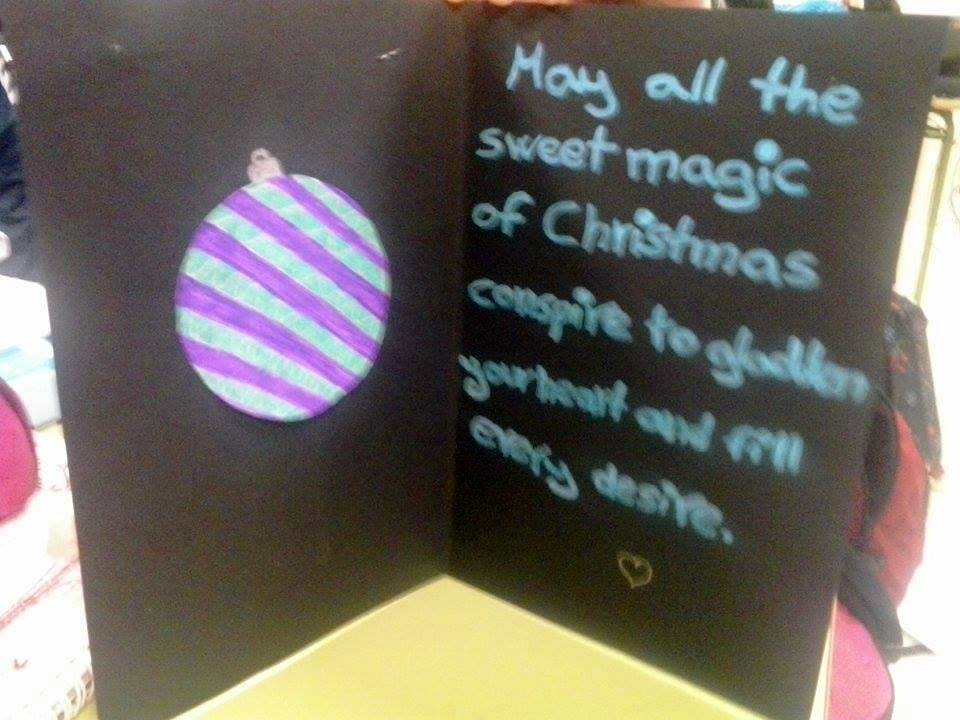 May all the
sweet magic
of Christmas
conspire to gladden
your heart and fill
every desire.